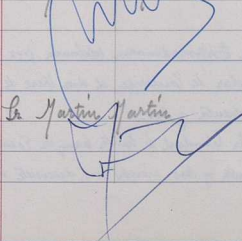 Sr Martin Martin